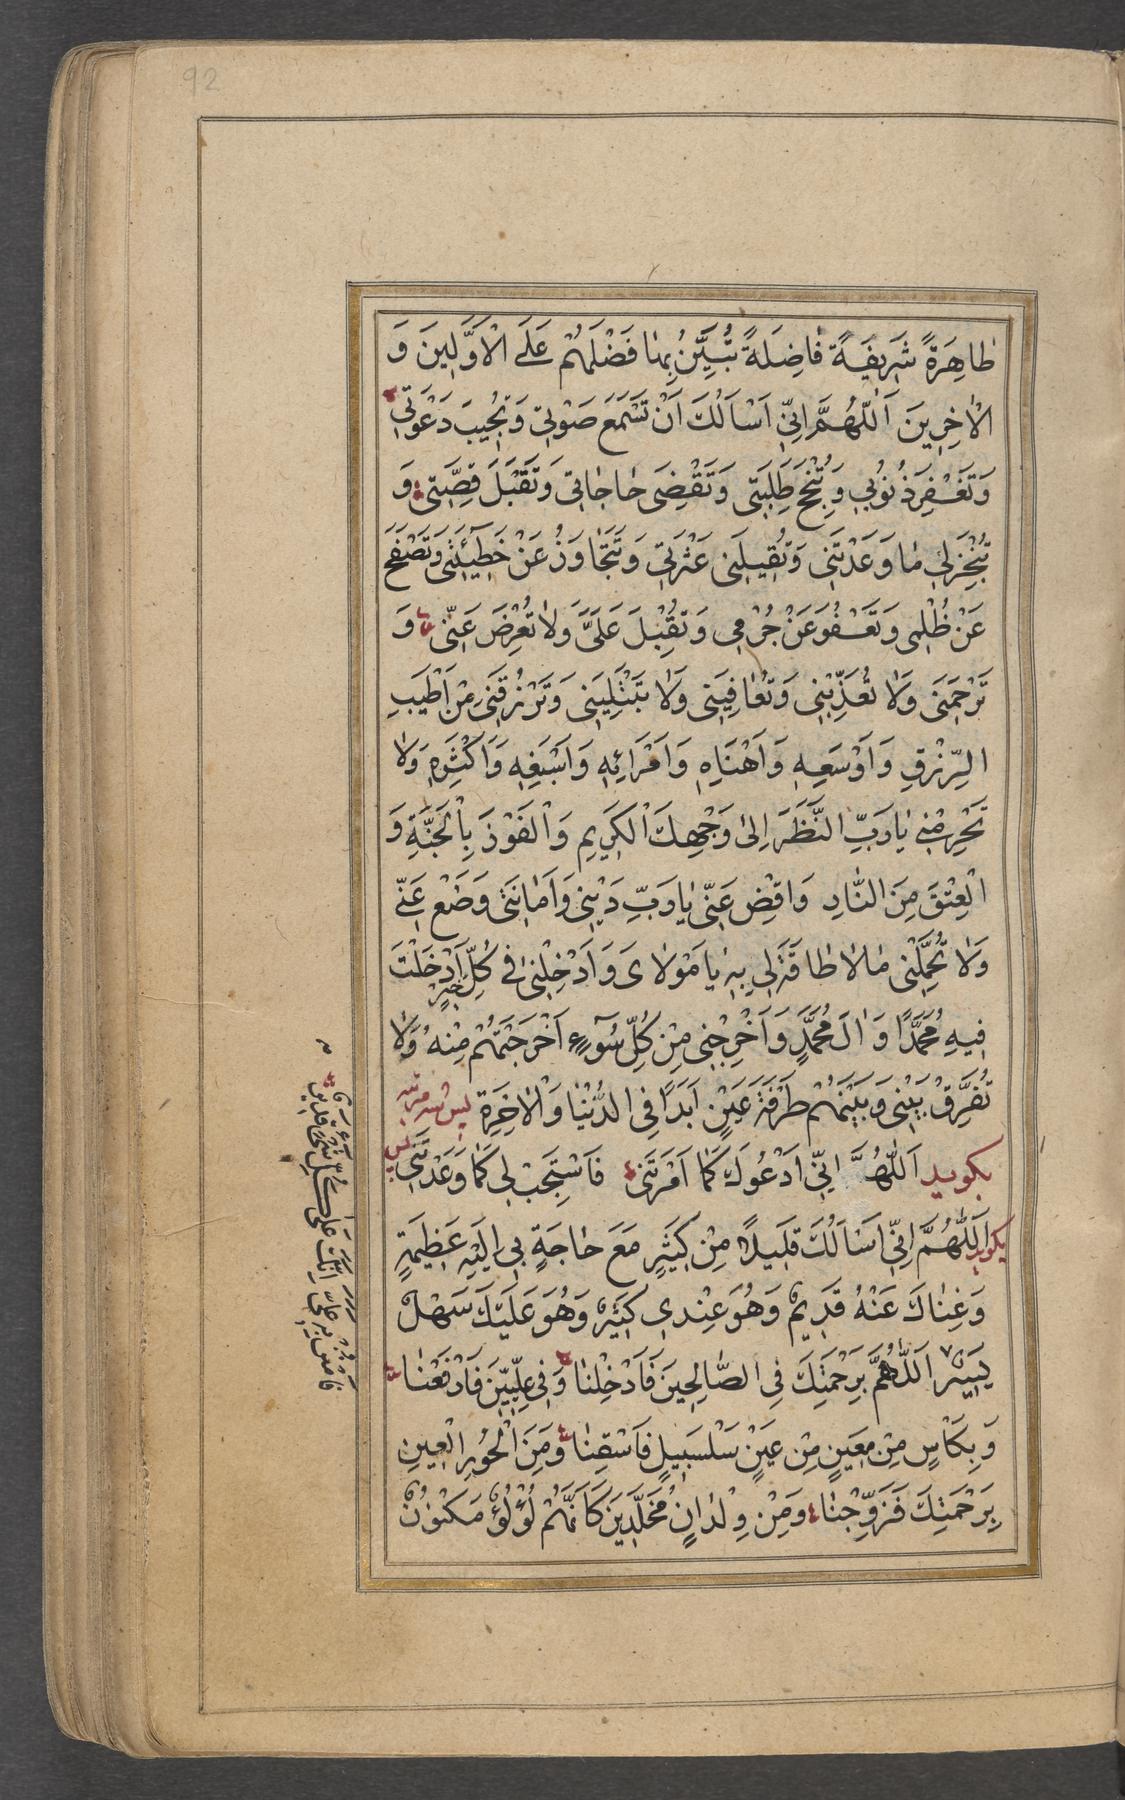 92
طاهِرَةً شَرِيفَةً فاضِلَةً تُبَيِّنُ بِها فَضْلَهُمْ عَلَى الْاَوَّلِينَ وَ
الْاخِرِينَ اَللّهُمَّ اِنِّي اَسْاَلُكَ اَنْ تَسْمَعَ صَوْتِي وَتُجِيبَ دَعْوَتِي
وَتَغْفِرَ ذُنُوبِي وَتُنْجِحَ طَلِبَتِي وَتَقْضِيَ حاجاتِي وَتَقْبَلَ قِصَّتِي وَ
تُنْجِزَلِي ما وَعَدْتَنِي وَتُقِيلَنِي عَثْرَتِي وَتَتَجاوَزُ عَنْ خَطِيئَتِي وَتَصْفَحَ
عَنْ ظُلْمِي وَتَعْفُوَ عَنْ جُرْمِي وَتُقْبِلَ عَلَيَّ وَلا تُعْرِضَ عَنِّي وَ
تَرْحَمَنِي وَلا تُعَذِّبْنِي وَتُعافِيَنِي وَلا تَبْتَلِيَنِي وَتَرْزُقَنِي مِنْ اَطْيَبِ
الرِّزْقِ وَاَوْسَعِهِ وَاَهْنَاِهِ وَاَمْرَائِهِ وَاَسْبَغِهِ وَاَكْثَرِهِ وَلا
تَحْرِمْنِي يارَبِّ النَّظَرَ اِلى وَجْهِكَ الْكَرِيمِ وَالْفَوْزَ بِالْجَنَّةِ وَ
الْعِتْقَ مِنَ النّارِ وَاقْضِ عَنِّي يارَبِّ دَيْنِي وَاَمانَتِي وَضَعْ عَنِّي
وَلا تُحَمِّلْنِي مالا طاقَةَ لِي بِهِ يا مَوْلايَ وَاَدْخِلْنِي فِي كُلِّ خَيْرٍ اَدْخَلْتَ
فِيهِ مُحَمَّدًا وَالَ مُحَمَّدٍ وَاَخْرِجْنِي مِنْ كُلِّ سُوءٍ اَخْرَجْتَهُمْ مِنْهُ وَلا
تُفَرِّقْ بَيْنِي وَبَيْنَهُمْ طَرْفَةَ عَيْنٍ اَبَدًا فِي الدُّنْيا وَالْاخِرَةِ پس سه مرتبه
بكويد اَللّهُمَّ اِنِّي اَدْعُوكَ كَما اَمَرْتَنِي فَاسْتَجِبْ لِي كَما وَعَدْتَنِي پس
بكويد اَللّهُمَّ اِنِّي اَسْاَلُكَ قَلِيلًا مِنْ كَثِيرٍ مَعَ حاجَةٍ بِي اِلَيْهِ عَظِيمَةٍ
وَغِناكَ عَنْهُ قَدِيمٌ وَهُوَ عِنْدِي كَثِيرٌ وَهُوَ عَلَيْكَ سَهْلٌ
يَسِيرٌ اَللّهُمَّ بِرَحْمَتِكَ فِي الصّالِحِينَ فَاَدْخِلْنا وَفِي عِلِّيِّينَ فَارْفَعْنا
وَبِكَاْسٍ مِنْ مَعِينٍ مِنْ عَيْنٍ سَلْسَبِيلٍ فَاسْقِنا وَمِنَ الْحُورِ الْعِينِ
بِرَحْمَتِكَ فَزَوِّجْنا وَمِنْ وِلْدانٍ مُخَلَّدِينَ كَاَنَّهُمْ لُؤْلُؤٌ مَكْنُونٌ
فَامْنُنْ بِهِ عَلَيَّ اِنَّكَ عَلى كُلِّ شَيْءٍ قَدِيرٌ